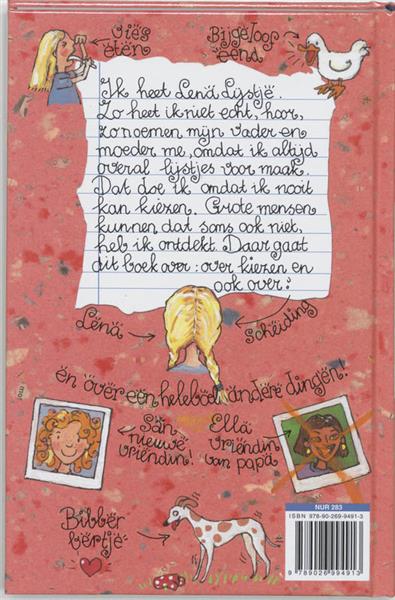 viës etën
Bijgeloof eend
Ik heet Lenä Lijstjë.
Zo heet ik niet echt, hoor,
zo noemen mijn vader en
moeder me, omdat ik altijd
overal lijstjes voor maak.
Dat doe ik omdat ik nooit
kan kiezen. Grote mensen
kunnen dat soms ook niet,
heb ik ontdekt. Daar gaat
dit boek over: over kiezen en
ook over:
Lënä
schëiding
en över een heleböl änderë dingen!
Sän
nieuwë
vriëndin!
Ellä
vriëndin
van papa
Bibbër
bërtjë
NUR 283
ISBN 978-90-269-9491-3
9 789026 994913